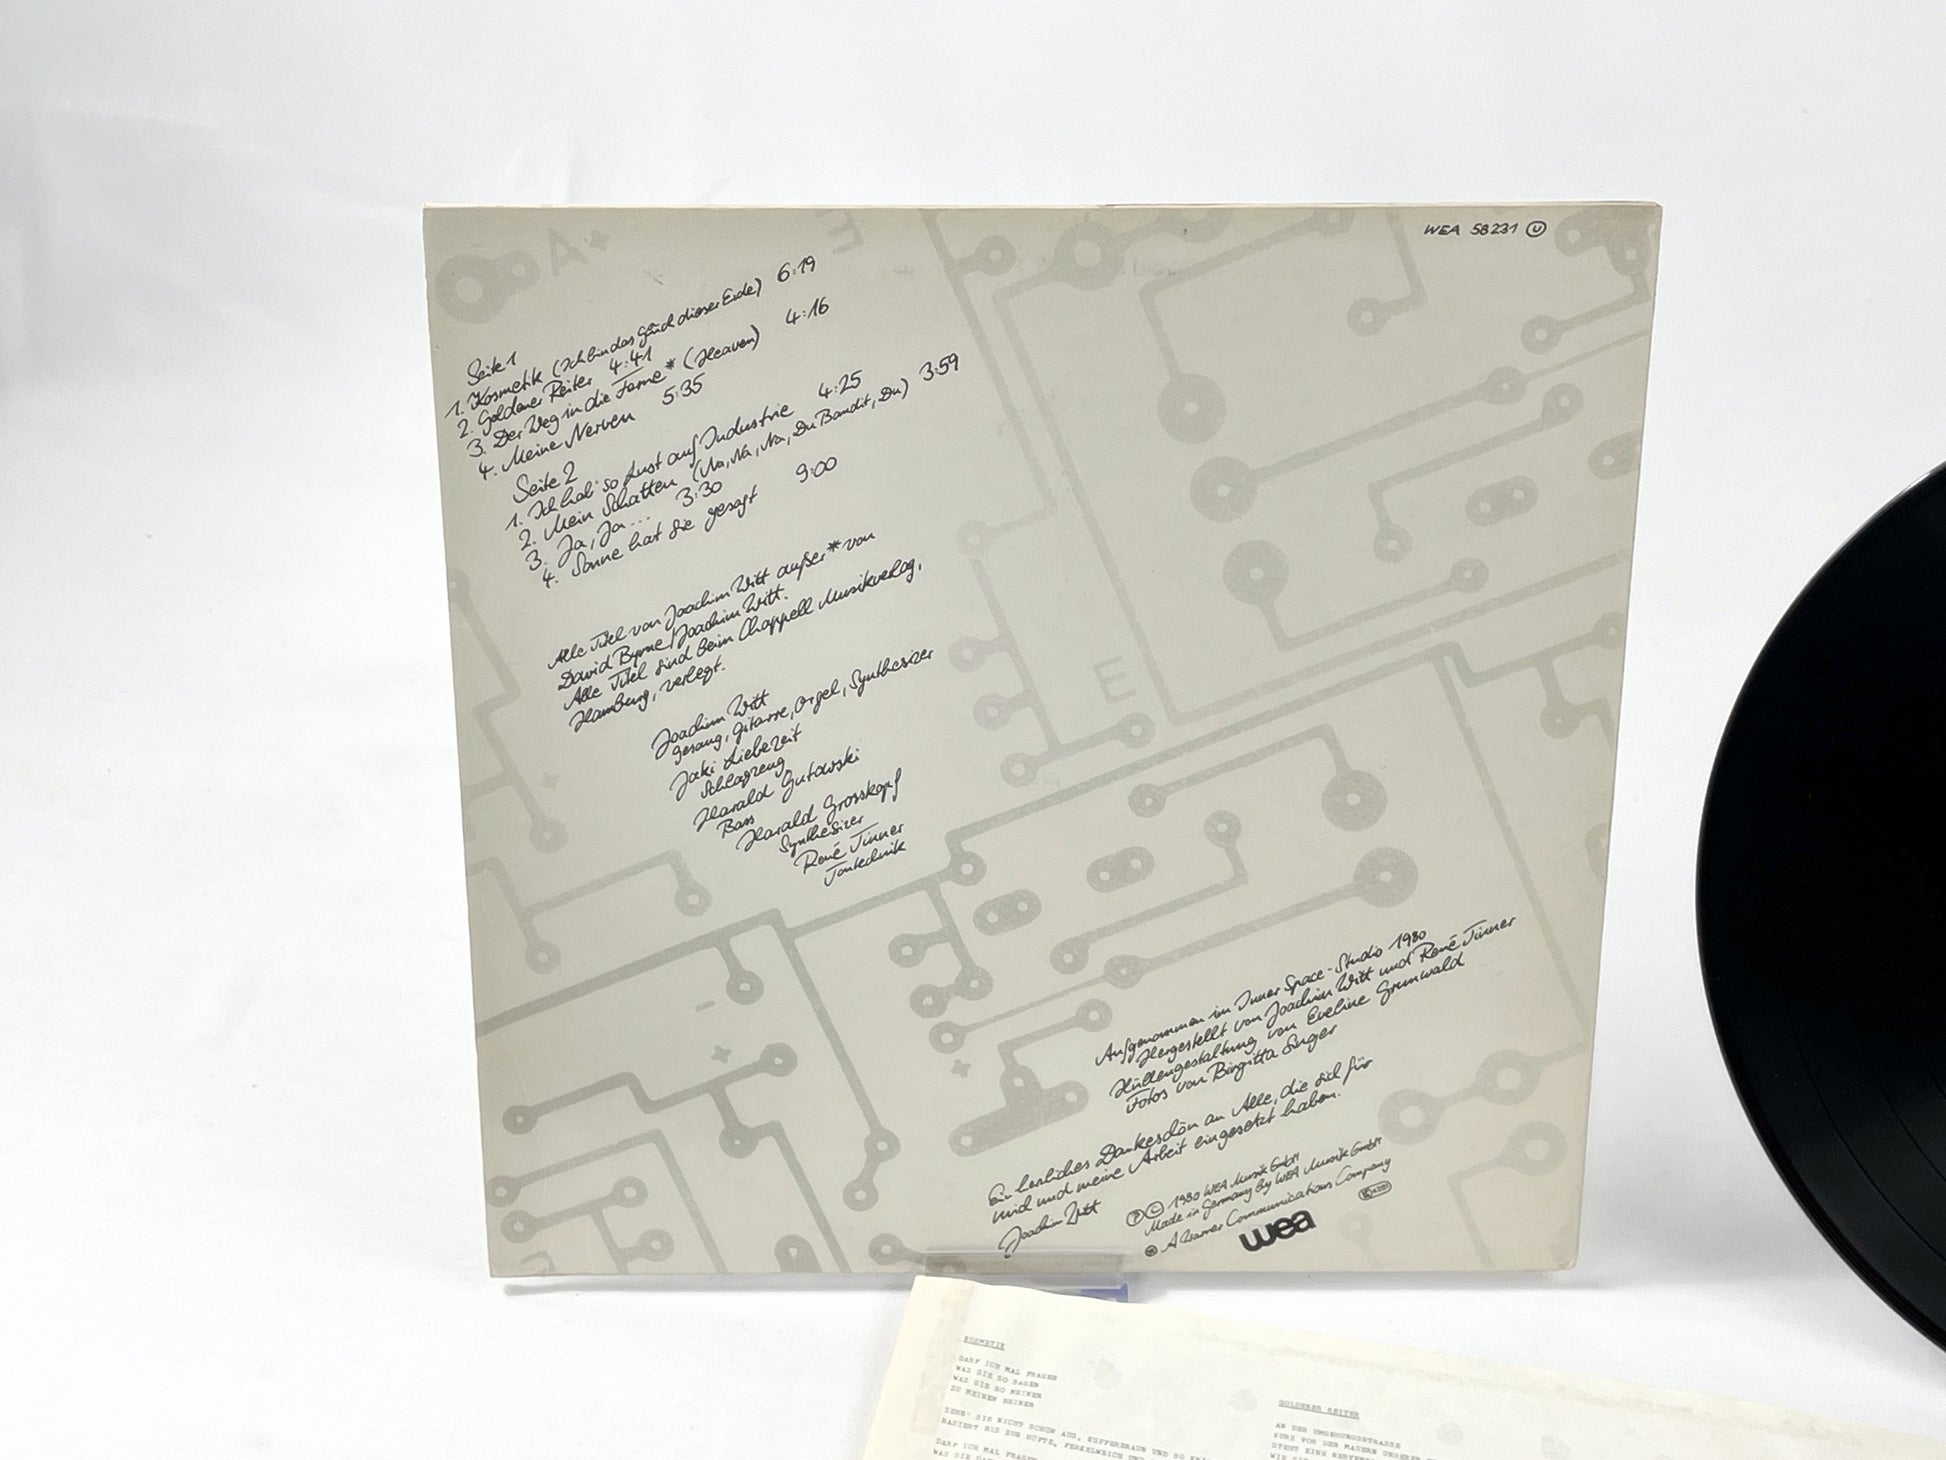 WEA 58231 U
Seite 1
1. Kosmetik (Ich bin das Glück dieser Erde) 6:19
2. Goldener Reiter 4:41
3. Der Weg in die Ferne* (Heaven) 4:16
4. Meine Nerven 5:35
Seite 2
1. Ich hab' so Lust auf Industrie 4:25
2. Mein Schatten (Na, Na, Na, Du Bandit, Du) 3:59
3. Ja, Ja... 3:30
4. Sonne hat sie gesagt 9:00
Alle Titel von Joachim Witt außer * von
David Byrne/Joachim Witt.
Alle Titel sind beim Chappell Musikverlag,
Hamburg, verlegt.
Joachim Witt
Gesang, Gitarre, Orgel, Synthesizer
Jaki Liebezeit
Schlagzeug
Harald Gutowski
Bass
Harald Grosskopf
Synthesizer
René Tinner
Tontechnik
Aufgenommen im Inner Space-Studio 1980
Hergestellt von Joachim Witt und René Tinner
Hüllengestaltung von Eveline Grunwald
Fotos von Birgitta Singer
Ein herzliches Dankeschön an Alle, die sich für
mich und meine Arbeit eingesetzt haben.
Joachim Witt
Ⓟ © 1980 WEA Musik GmbH
Made in Germany by WEA Musik GmbH
A Warner Communications Company
wea
A+
E
E
KOSMETIK
DARF ICH MAL FRAGEN
WAS SIE SO SAGEN
WAS SIE SO MEINEN
ZU MEINEN BEINEN
SEHN' SIE NICHT SCHÖN AUS, KUPFERBRAUN UND SO
RASIERT BIS ZUR HÜFTE, FERKELWEICH UND
DARF ICH MAL FRAGEN
GOLDENER REITER
AN DER UMGEHUNGSSTRASSE
KURZ VOR DEN MAUERN UNSERER
STEHT EINE